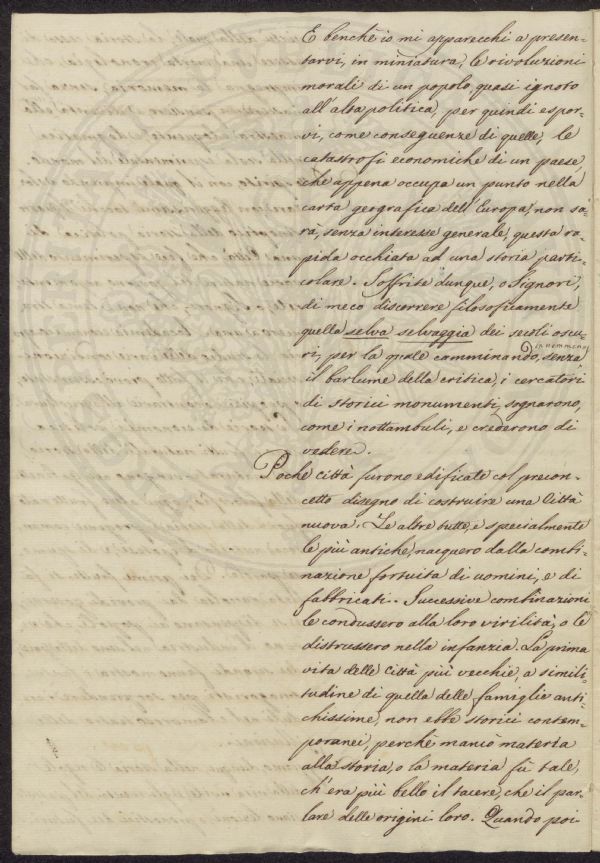 E benchè io mi apparecchi a presen-
tarvi, in miniatura, le rivoluzioni
morali di un popolo, quasi ignoto
all'alta politica, per quindi espor-
vi, come conseguenze di quelle, le
catastrofi economiche di un paese,
che appena occupa un punto nella
carta geografica dell'Europa, non sa-
rà, senza interesse generale, questa ra-
pida occhiata ad una storia parti-
colare. Soffrite dunque, o Signori,
di meco discorrere filosoficamente
quella selva selvaggia dei secoli oscu-
ri, per la quale camminando, senza
il barlume della critica, i cercatori
di storici monumenti, sognarono,
come i nottambuli, e crederono di
vedere.
Poche città furono edificate col precon-
cetto disegno di costruire una Città
nuova. Le altre tutte, e specialmente
le più antiche, nacquero dalla combi-
nazione fortuita di uomini, e di
fabbricati. Successive combinazioni
le condussero alla loro virilità, o le
distrussero nella infanzia. La prima
vita delle Città più vecchie, a simili-
tudine di quella delle famiglie anti-
chissime, non ebbe storici contem-
poranei, perchè mancò materia
alla storia, o la materia fù tale,
ch'era più bello il tacere, che il par-
lare delle origini loro. Quando poi